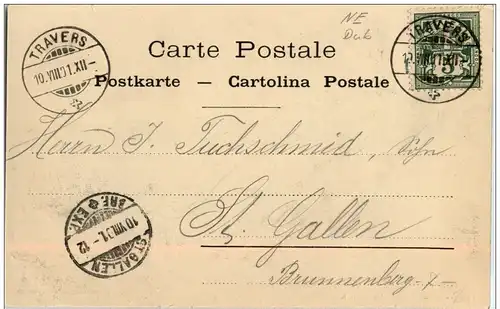 NE
Dub
TRAVERS
10.VIII.01.XII
TRAVERS
10.VIII.01.XII
5
Carte Postale
Postkarte — Cartolina Postale
Herrn J. Tuchschmid, Sohn
St. Gallen
Brunnenberg
ST. GALLEN
10.VIII.01.-12
BRF. EXP.